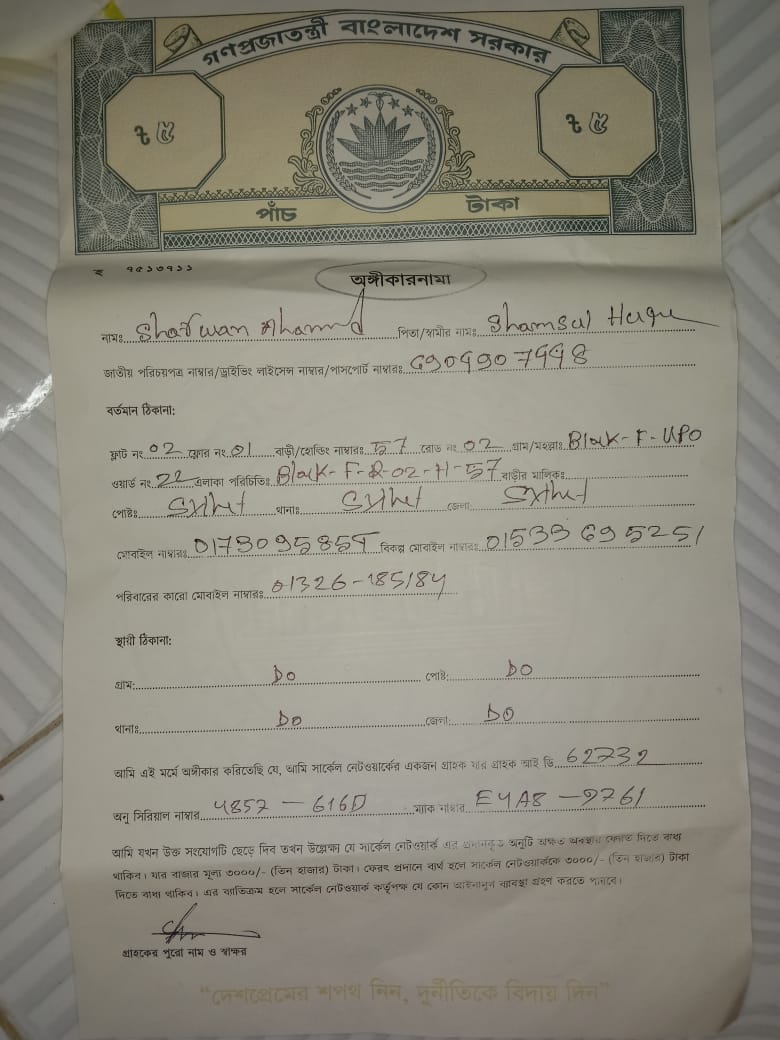 গণপ্রজাতন্ত্রী বাংলাদেশ সরকার
৳ ৫ ৳ ৫
পাঁচ টাকা
অঙ্গীকারনামা
নামঃ পিতা/স্বামীর নামঃ Shamsul Huque
জাতীয় পরিচয়পত্র নাম্বার/ড্রাইভিং লাইসেন্স নাম্বার/পাসপোর্ট নাম্বারঃ
বর্তমান ঠিকানা:
ফ্লাট নং 02 ফ্লোর নং 01 বাড়ী/হোল্ডিং নাম্বারঃ 57 রোড নং 02 গ্রাম/মহল্লাঃ Block-F-UPO
ওয়ার্ড নং 22 এলাকা পরিচিতিঃ Block-F-R-02-H-57 বাড়ীর মালিকঃ
পোষ্টঃ Sylhet থানাঃ Sylhet জেলা: Sylhet
মোবাইল নাম্বারঃ বিকল্প মোবাইল নাম্বারঃ 01533695251
পরিবারের কারো মোবাইল নাম্বারঃ 01326-185184
স্থায়ী ঠিকানা:
গ্রাম: DO পোষ্ট: DO
থানাঃ DO জেলা: DO
আমি এই মর্মে অঙ্গীকার করিতেছি যে, আমি সার্কেল নেটওয়ার্কের একজন গ্রাহক যার গ্রাহক আই ডি 62732
অনু সিরিয়াল নাম্বার 4857-616D ম্যাক নাম্বার E4A8-9761
আমি যখন উক্ত সংযোগটি ছেড়ে দিব তখন উল্লেক্ষ্য যে সার্কেল নেটওয়ার্ক এর প্রদানকৃত অনুটি অক্ষত অবস্থায় ফেরত দিতে বাধ্য
থাকিব। যার বাজার মূল্য ৩০০০/- (তিন হাজার) টাকা। ফেরৎ প্রদানে ব্যর্থ হলে সার্কেল নেটওয়ার্ককে ৩০০০/- (তিন হাজার) টাকা
দিতে বাধ্য থাকিব। এর ব্যতিক্রম হলে সার্কেল নেটওয়ার্ক কর্তৃপক্ষ যে কোন আইনানুগ ব্যবস্থা গ্রহণ করতে পারবে।
গ্রাহকের পুরো নাম ও স্বাক্ষর
“দেশপ্রেমের শপথ নিন, দুর্নীতিকে বিদায় দিন”